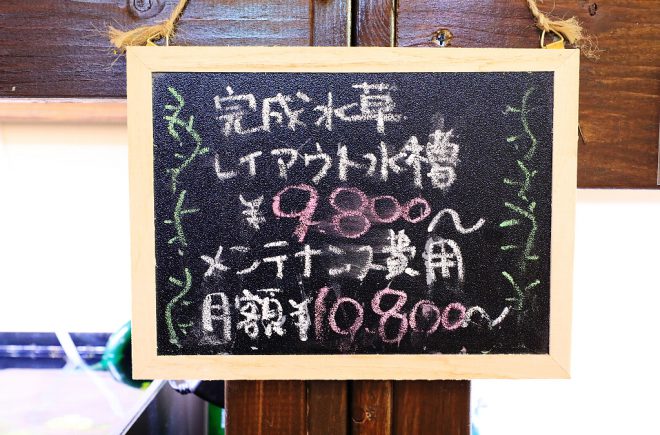 完成水草
レイアウト水槽
¥9.800〜
メンテナンス費用
月額¥10.800〜